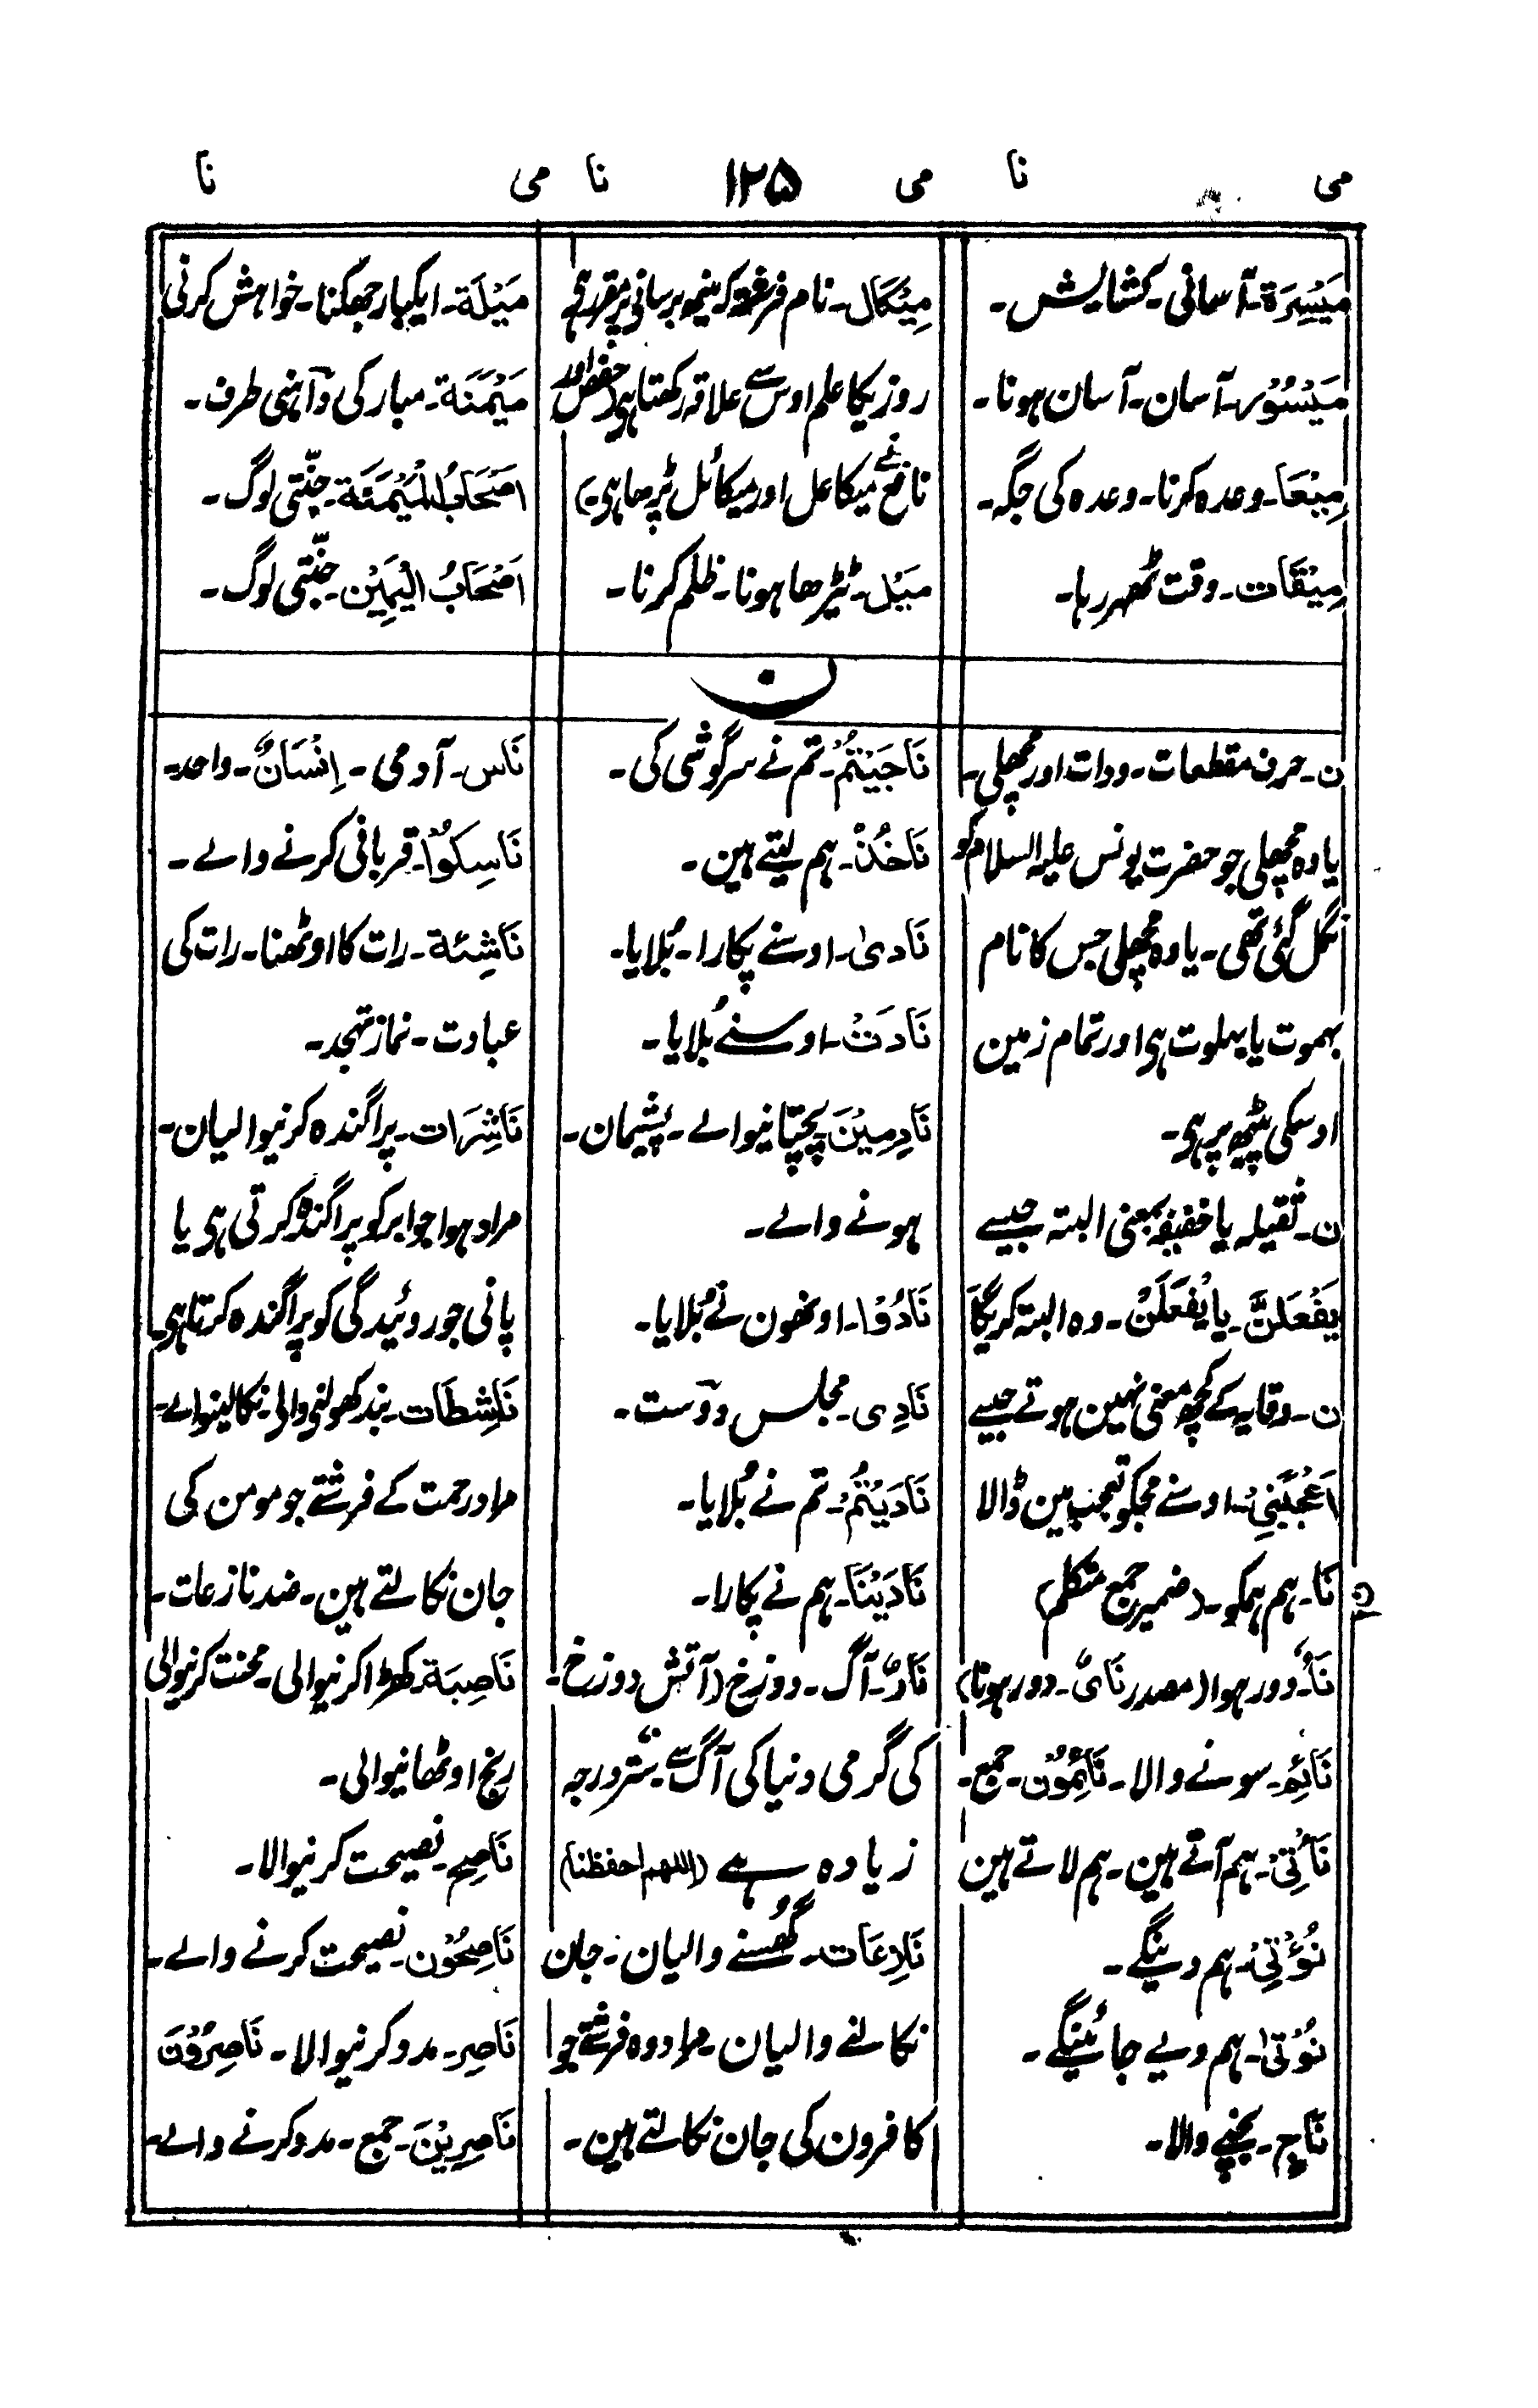 می نا ۱۲۵ می نا می نا
مَیْسِرَة۔ آسانی۔ کشایش۔
مَیْسُوْر۔ آسان۔ آسان ہونا۔
مِیْعَا۔ وعدہ کرنا۔ وعدہ کی جگہ۔
مِیْقَات۔ وقت ٹھہر رہا۔
مِیْکَال۔ نام فرشتہ کہ مینھ برسانی پر مقرر ہے
روزیکا علم اوس سے علاقہ رکھتا ہی (حفص اور
نافع نے میکاعل اور میکائل پڑھا ہی۔)
مَیْل۔ ٹیڑھا ہونا۔ ظلم کرنا۔
مَیْلَة۔ ایکبار جھکنا۔ خواہش کرنی
مَیْمَنَة۔ مبارکی دآہنی طرف۔
اَصْحَابُ الْمَیْمَنَة۔ جنّتی لوگ۔
اَصْحَابُ الْیَمِیْن۔ جنّتی لوگ۔
ن
ن۔ حرف مقطعات۔ دوات اور مچھلی۔
یا وہ مچھلی جو حضرت یونس علیہ السلام کو
نگل گئی تھی۔ یا وہ مچھلی جس کا نام
بہموت یا بہلوت ہی اور تمام زمین
اوسکی پیٹھ پر ہی۔
ن۔ ثقیلہ یا خفیفہ بمعنی البتہ جیسے
یَفْعَلَنَّ۔ یا یَفْعَلَنْ۔ وہ البتہ کریگا
ن۔ وقایہ کے کچھ معنی نہین ہوتے جیسے
اَعْجَبَنِیْ۔ اوسنے مجکو تعجب مین ڈالا
نَا۔ ہم ہمکو۔ (ضمیر جمع متکلم)
نَأ۔ دور ہوا (مصدر نَایٌ۔ دور ہونا)
نَائِم۔ سونے والا۔ نَائِمُوْن۔ جمع۔
نَأْتِیْ۔ ہم آتے ہین۔ ہم لاتے ہین
نُؤْتِیْ۔ ہم دینگے۔
نُؤْتیٰ۔ ہم دیے جائینگے۔
نَاجٍ۔ بچنے والا۔
نَاجَیْتُمْ۔ تم نے سرگوشی کی۔
نَاخُذْ۔ ہم لیتے ہین۔
نَادیٰ۔ اوسنے پکارا۔ بُلایا۔
نَادَتْ۔ اوسنے بُلایا۔
نَادِمِیْنَ۔ پچتانیوالے۔ پشیمان۔
ہونے والے۔
نَادُوْا۔ اونھون نے بُلایا۔
نَادِی۔ مجلس دوست۔
نَادَیْتُمْ۔ تم نے بُلایا۔
نَادَیْنَا۔ ہم نے پکارا۔
نَارٌ۔ آگ۔ دوزخ (آتش دوزخ۔
کی گرمی دنیا کی آگ سے۔ ستر درجہ
زیادہ ہے (اللہم احفظنا)
نَازِعَات۔ گھُسنے والیان۔ جان
نکالنے والیان۔ مراد وہ فرشتے جو
کافرون کی جان نکالتے ہین۔
نَاس۔ آدمی۔ اِنْسَانٌ۔ واحد۔
نَاسِکُوْا۔ قربانی کرنے والے۔
نَاشِئَة۔ رات کا اوٹھنا۔ رات کی
عبادت۔ نماز تہجد۔
نَاشِرَات۔ پراگندہ کرنیوالیان۔
مراد ہوا جو ابر کو پراگندہ کرتی ہی یا
پانی جو روئیدگی کو پراگندہ کرتا ہی
نَاشِطَات۔ بند کھولنی والی۔ نکالینوالے۔
مراد رحمت کے فرشتے جو مومن کی
جان نکالتے ہین۔ ضد نازعات۔
نَاصِبَة۔ کھڑا کرنیوالی۔ محنت کرنیوالی
رنج اوٹھانیوالی۔
نَاصِح۔ نصیحت کرنیوالا۔
نَاصِحُوْن۔ نصیحت کرنے والے۔
نَاصِر۔ مدد کرنیوالا۔ نَاصِرُوْنَ
نَاصِرِیْنَ۔ جمع۔ مدد کرنے والے۔